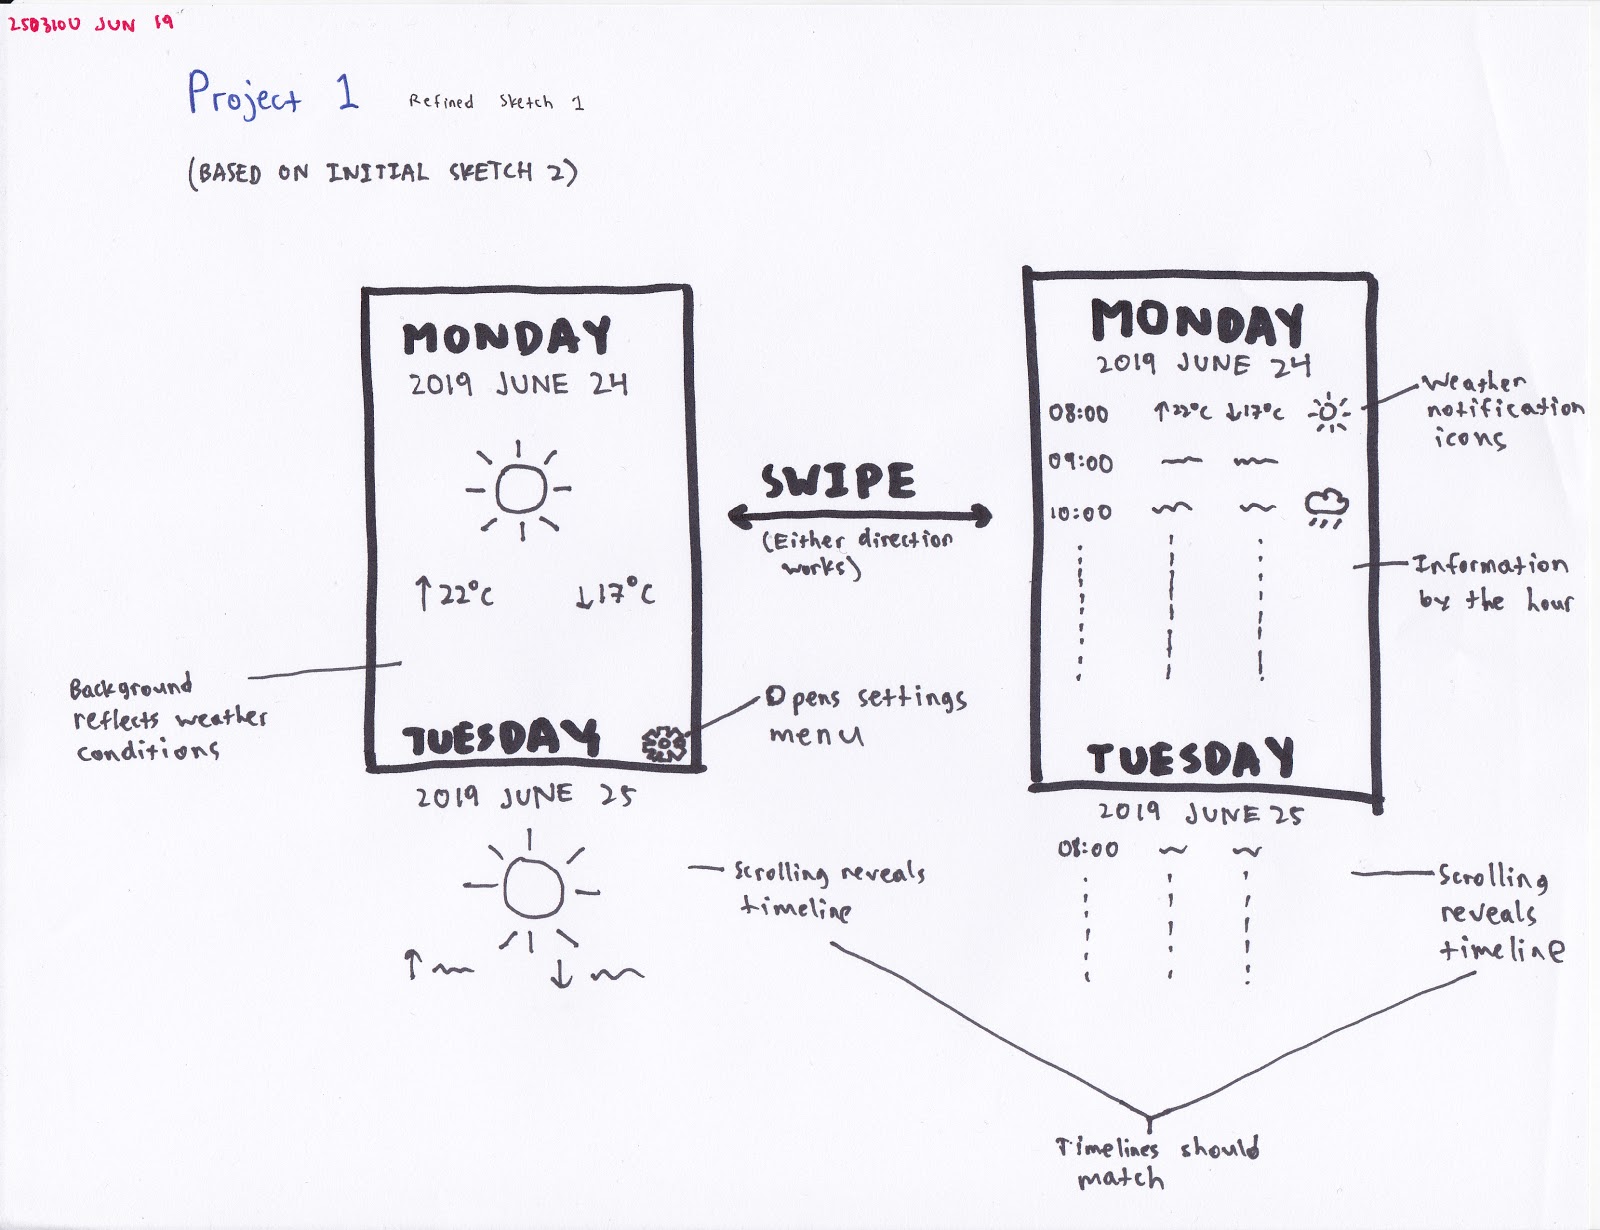 250310U JUN 19
Project 1 Refined Sketch 1
(BASED ON INITIAL SKETCH 2)
MONDAY
2019 JUNE 24
↑22°C ↓17°C
Background
reflects weather
conditions
TUESDAY
Opens settings
menu
2019 JUNE 25
↑ ↓
Scrolling reveals
timeline
SWIPE
(Either direction
works)
MONDAY
2019 JUNE 24
08:00 ↑22°C ↓17°C
09:00
10:00
Weather
notification
icons
Information
by the hour
TUESDAY
2019 JUNE 25
08:00
Scrolling
reveals
timeline
Timelines should
match